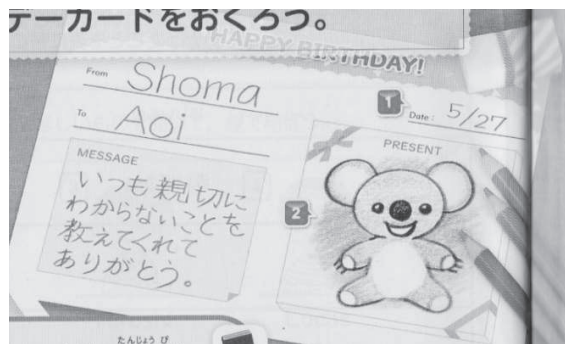 デーカードをおくろう。
HAPPY BIRTHDAY!
From Shoma
To Aoi
1
Date: 5/27
MESSAGE
いつも親切に
わからないことを
教えてくれて
ありがとう。
PRESENT
2
たんじょう び